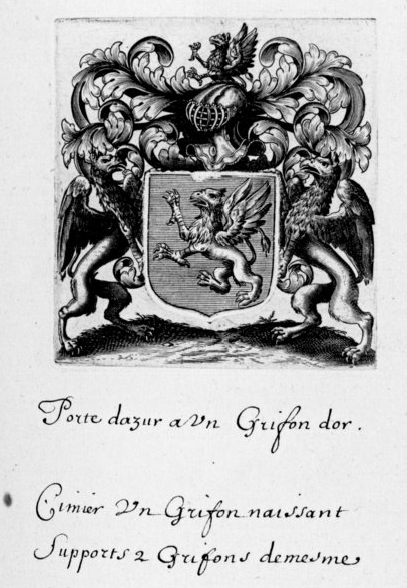 Porte dazur a Vn Grifon dor.
Cimier Vn Grifon naissant
Supports 2 Grifons demesme